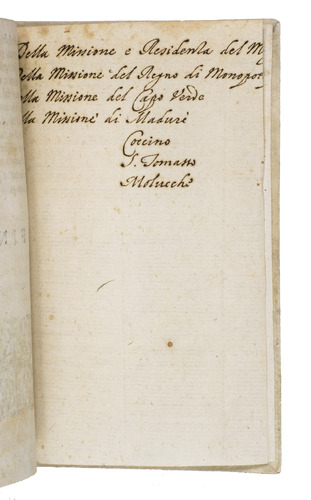 Della Missione e Residenza del
ella Missione del Regno di
lla Missione del Capo Verde
la Missione di Madurè
Coccino
S. Tomasso
Molucche